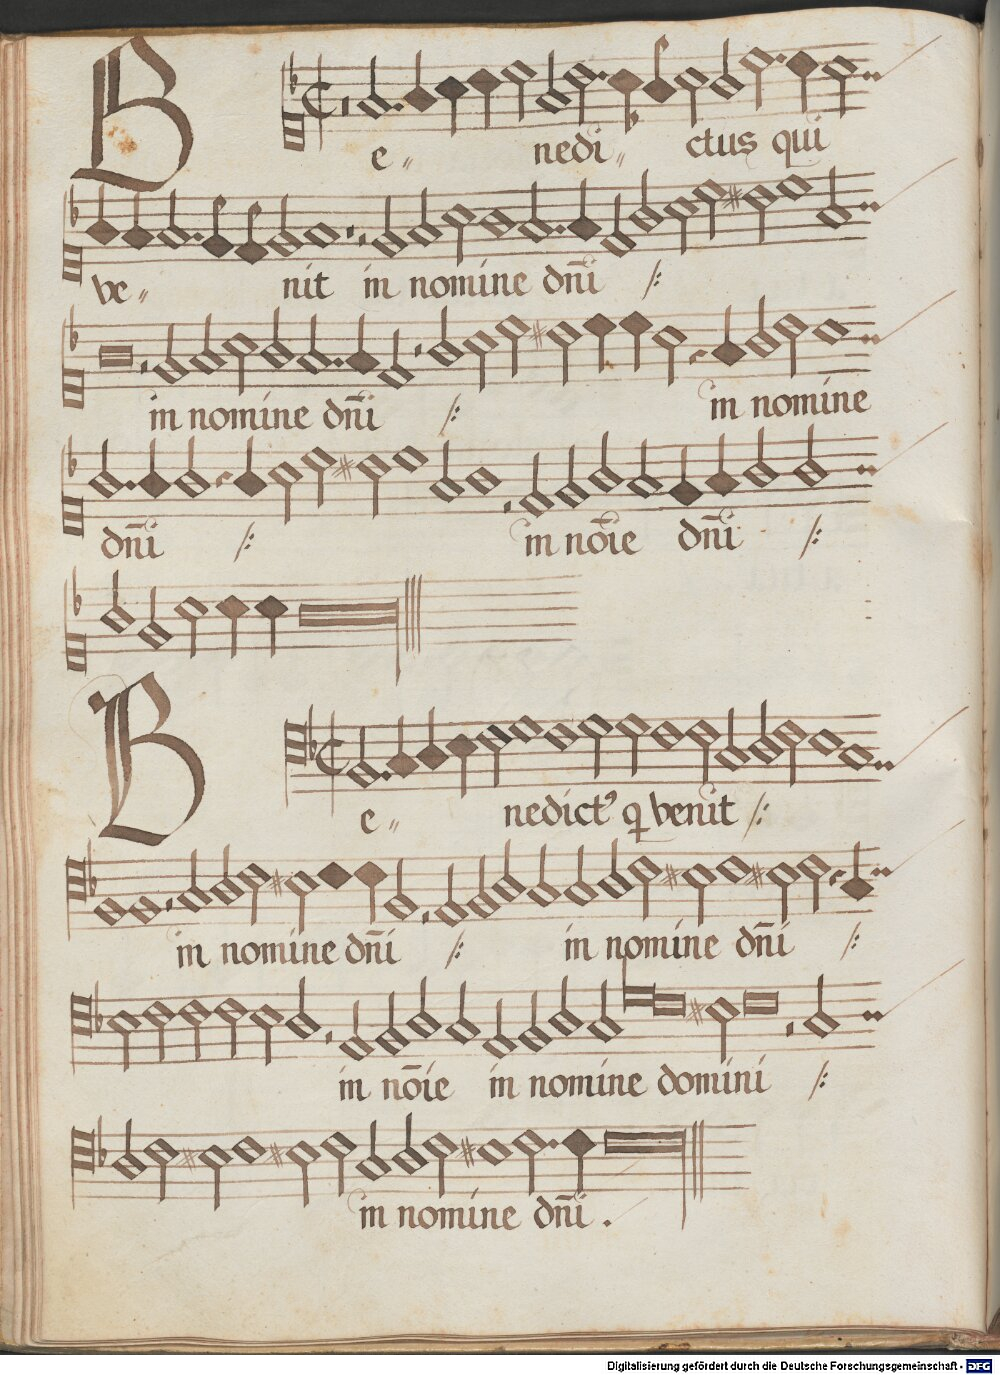 Be〃 nedi〃 ctus qui
ve〃 nit in nomine dn̄i /:
in nomine dn̄i /: in nomine
dn̄i /: in nōie dn̄i /:
Be〃 nedict⁹ q venit /:
in nomine dn̄i /: in nomine dn̄i /:
in nōie in nomine domini /:
in nomine dn̄i .
Digitalisierung gefördert durch die Deutsche Forschungsgemeinschaft - DFG